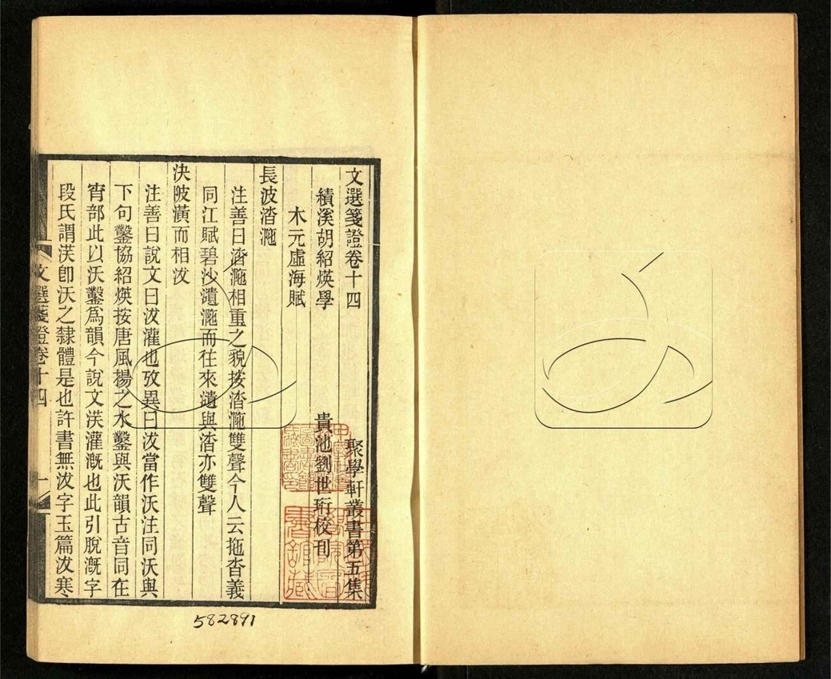 文選箋證卷十四 聚學軒叢書第五集
績溪胡紹煐學 貴池劉世珩校刊
木元虛海賦
長波涾㴾
注善曰涾㴾相重之貌按涾㴾雙聲今人云拖沓義
同江賦碧沙㵢㴾而往來㵢與涾亦雙聲
決陂潢而相沷
注善曰說文曰沷灌也攷異曰沷當作沃注同沃與
下句鑿協紹煐按唐風揚之水鑿與沃韻古音同在
宵部此以沃鑿爲韻今說文渶灌漑也此引脫漑字
段氏謂渶卽沃之隸體是也許書無沷字玉篇沷寒
文選箋證卷十四 一
582891